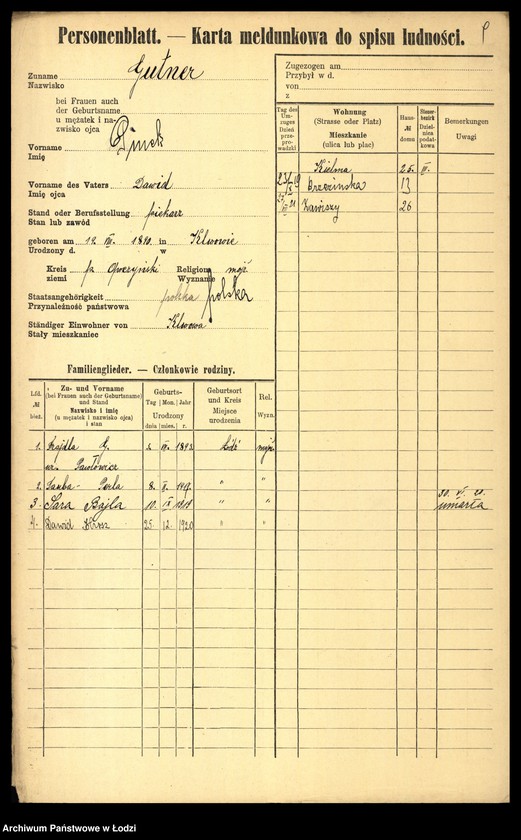 Personenblatt. — Karta meldunkowa do spisu ludności.
Zuname Gutner
Nazwisko
bei Frauen auch
der Geburtsname
u mężatek i na-
zwisko ojca
Vorname Pinek
Imię
Vorname des Vaters Dawid
Imię ojca
Stand oder Berufsstellung piekarz
Stan lub zawód
geboren am 12 1890. in Klwowie
Urodzony d. w
Kreis Opoczyński Religion mojż.
ziemi Wyznanie
Staatsangehörigkeit polska polska
Przynależność państwowa
Ständiger Einwohner von Klwowa
Stały mieszkaniec
Zugezogen am
Przybył w d.
von
z
Tag des Umzuges
Dzień przeprowadzki
Wohnung
(Strasse oder Platz)
Mieszkanie
(ulica lub plac)
Haus-
№
domu
Steuerbezirk
Dzielnica podatkowa
Bemerkungen
Uwagi
Kielma 25. III.
Brzezińska 13
Zawiszy 26
Familienglieder. — Członkowie rodziny.
Lfd.
№
bież.
Zu- und Vorname
(bei Frauen auch der Geburtsname)
und Stand
Nazwisko i imię
(u mężatek i nazwisko ojca)
i stan
Geburts-
Tag | Mon. | Jahr
Urodzony
dnia | mies. | r.
Geburtsort
und Kreis
Miejsce
urodzenia
Rel.
Wyzn.
1. 1893 Łódź mojż.
Pawłowicz
2. Perla 8. " "
3. Sara Bajla 10. " "
umarła
4. Dawid 25. 12. 1920 " "
Archiwum Państwowe w Łodzi